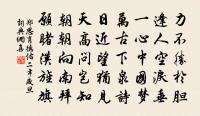 力不勝於胆
逢人空淚垂
一心中國夢
萬古下泉詩
日近望猶見
天高問豈知
朝朝向南拜
願睹漢旌旗
鄭思肖德祐二年歲旦
詞典網